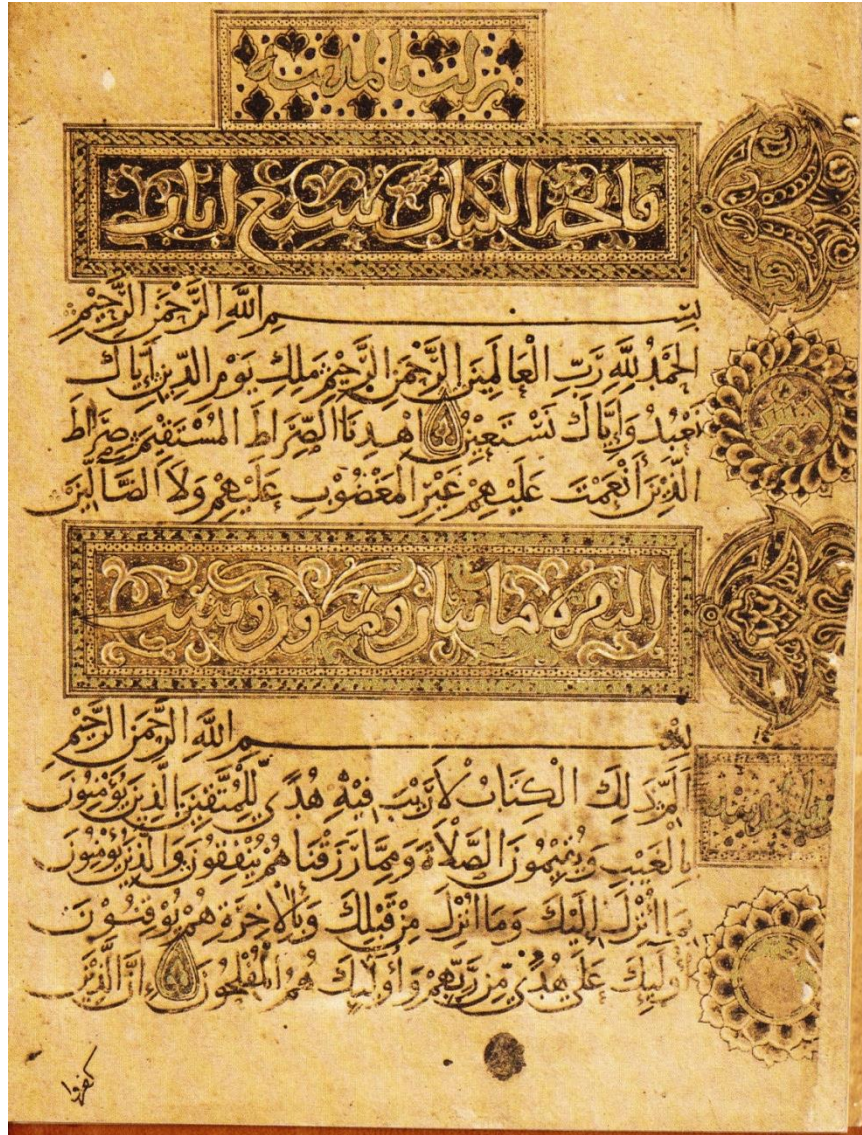 نزلت بالمدينة
فاتحة الكتاب سبع ايات
بِسْمِ اللَّهِ الرَّحْمَنِ الرَّحِيْمِ
الحَمْدُ لِلَّهِ رَبِّ الْعَالَمِيْنَ الرَّحْمَنِ الرَّحِيْمِ مَلِكِ يَوْمِ الدِّيْنِ إِيَّاكَ
نَعْبُدُ وَإِيَّاكَ نَسْتَعِيْنُ اهْدِنَا الصِّرَاطَ المُسْتَقِيْمَ صِرَاطَ
الَّذِيْنَ أَنْعَمْتَ عَلَيْهِمْ غَيْرِ المَغْضُوْبِ عَلَيْهِمْ وَلَا الضَّالِّيْنَ
البقرة مايتان وثمنون وست
بِسْمِ اللَّهِ الرَّحْمَنِ الرَّحِيْمِ
الم ذَلِكَ الْكِتَابُ لَا رَيْبَ فِيْهِ هُدًى لِلْمُتَّقِيْنَ الَّذِيْنَ يُؤْمِنُوْنَ
بِالْغَيْبِ وَيُقِيْمُوْنَ الصَّلَاةَ وَمِمَّا رَزَقْنَاهُمْ يُنْفِقُوْنَ وَالَّذِيْنَ يُؤْمِنُوْنَ
بِمَا أُنْزِلَ إِلَيْكَ وَمَا أُنْزِلَ مِنْ قَبْلِكَ وَبِالْآخِرَةِ هُمْ يُوْقِنُوْنَ
أُولَئِكَ عَلَى هُدًى مِنْ رَبِّهِمْ وَأُولَئِكَ هُمُ الْمُفْلِحُوْنَ إِنَّ الَّذِيْنَ
كفروا